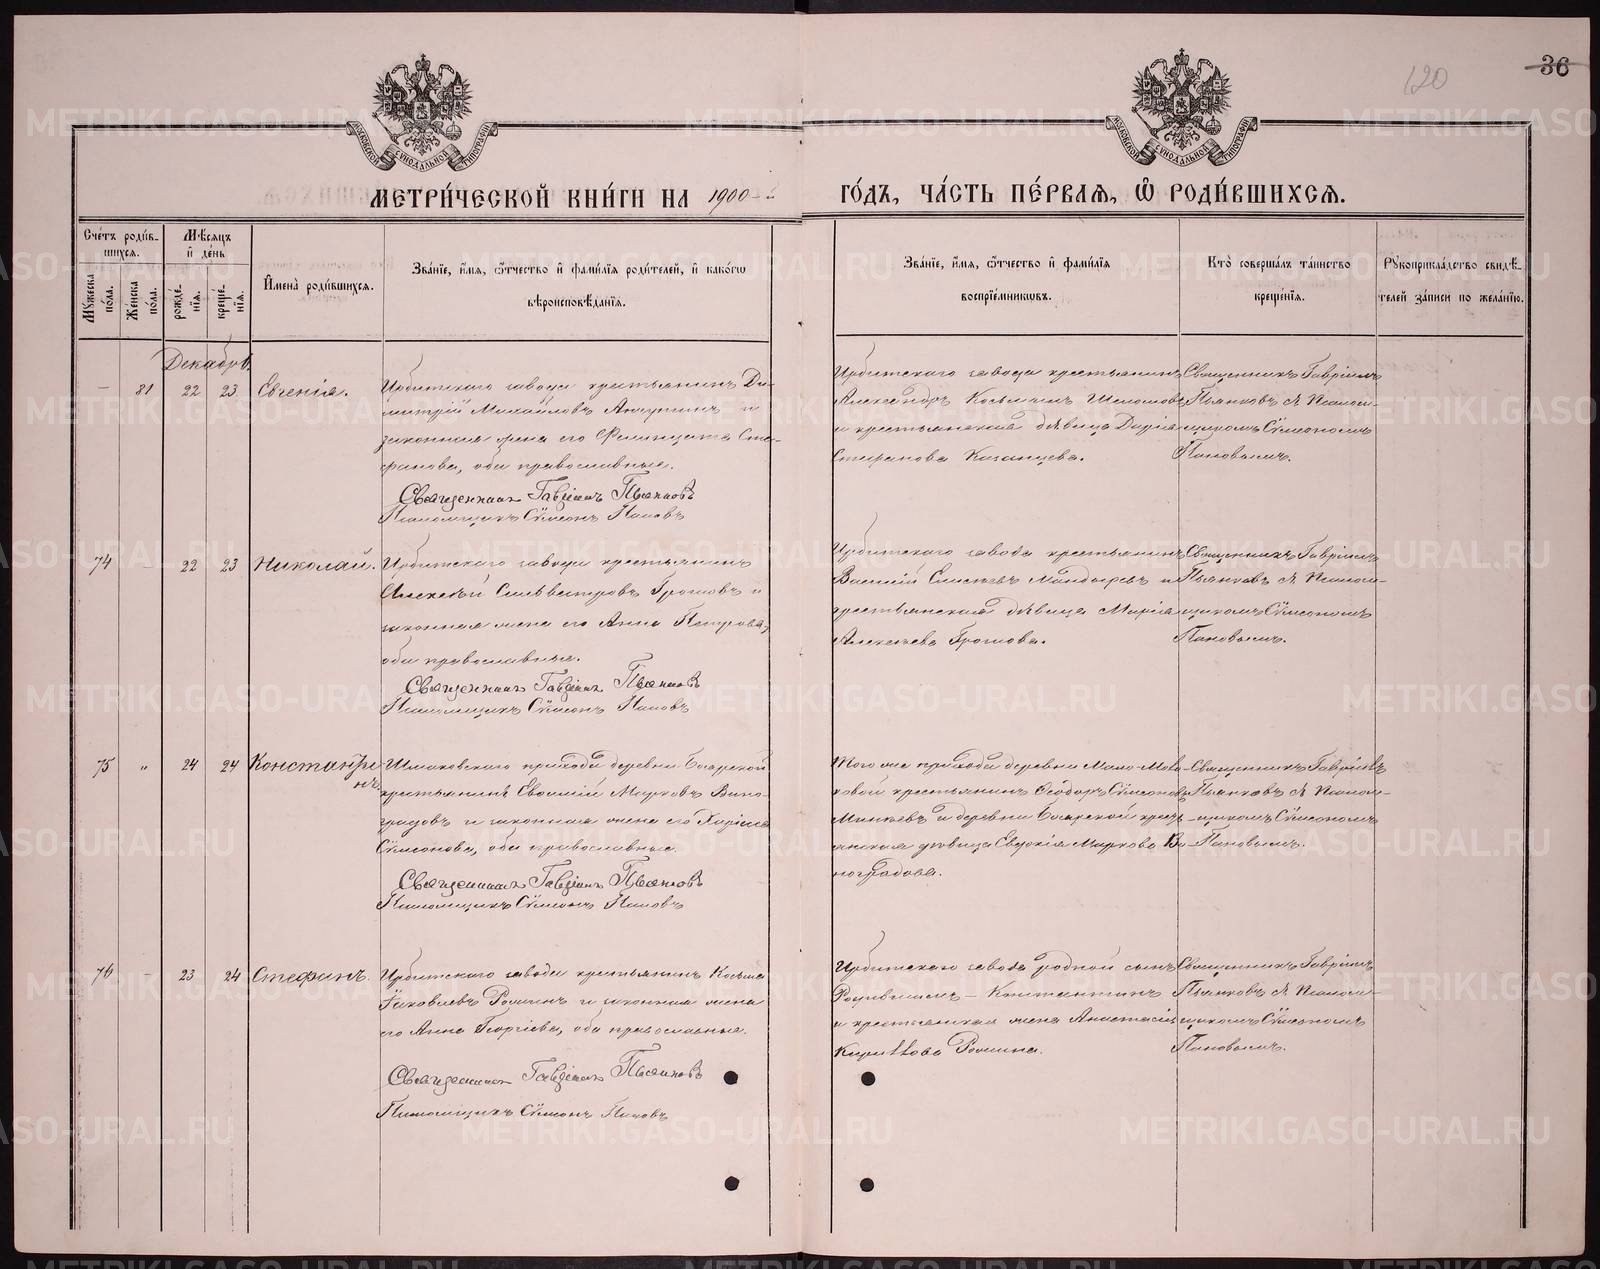 120
36
МОСКОВСКОЙ СѴНОДАЛЬНОЙ ТИПОГРАФІИ
МОСКОВСКОЙ СѴНОДАЛЬНОЙ ТИПОГРАФІИ
МЕТРИ́ЧЕСКОЙ КНИ́ГИ НА 1900
ГО́ДЪ, ЧА́СТЬ ПЕ́РВАЯ, Ѽ РОДИ́ВШИХСЯ.
Сче́тъ роди́вшихся.
Мꙋ́жеска пола.
Же́нска пола.
Мѣ́сяцъ и҆ де́нь
рожде́нїя.
креще́нїя.
И҆мена̀ роди́вшихся.
Зва́нїе, и҆́мя, ѻ҆́тчество и҆ фами́лїя роди́телей, и҆ како́гѡ
вѣроисповѣ́данїя.
Зва́нїе, и҆́мя, ѻ҆́тчество и҆ фами́лїя
воспрїе́мникѡвъ.
Кто̀ соверша́лъ та́инство
креще́нїя.
Рꙋкоприкла́дство свидѣ́-
телей за́писи по жела́нїю.
Декабрь
– 81 22 23 Евгенія.
Ирбитскаго завода крестьянинъ Ди-
митрій Михайловъ и
законная жена его Фелицата Сте-
фанова, оба православные.
Священникъ Гавріилъ Пьянковъ
Псаломщикъ Сѵмеонъ Поповъ
Ирбитскаго завода крестьянинъ
Александръ Косьминъ
и крестьянская дѣвица Дарія
Стефанова Казанцева.
Священникъ Гавріилъ
Пьянковъ съ Псалом-
щикомъ Сѵмеономъ
Поповымъ.
74 – 22 23 Николай.
Ирбитскаго завода крестьянинъ
Алексѣй Сильвестровъ Грошовъ и
законная жена его Анна Петрова,
оба православные.
Священникъ Гавріилъ Пьянковъ
Псаломщикъ Сѵмеонъ Поповъ
Ирбитскаго завода крестьянинъ
Василій Елисѣевъ Мандыревъ и
крестьянская дѣвица Марія
Алексѣева Грошова.
Священникъ Гавріилъ
Пьянковъ съ Псалом-
щикомъ Сѵмеономъ
Поповымъ.
75 „ 24 24 Константи-
нъ.
Шмаковскаго прихода деревни Боярской
крестьянинъ Евсимій Марковъ Вино-
градовъ и законная жена его
Сѵмеонова, оба православные.
Священникъ Гавріилъ Пьянковъ
Псаломщикъ Сѵмеонъ Поповъ
Того же прихода деревни
крестьянинъ Ѳеодоръ Сѵмеоновъ
и деревни Боярской кресть-
янская дѣвица Евдокія Маркова Ви-
ноградова.
Священникъ Гавріилъ
Пьянковъ съ Псалом-
щикомъ Сѵмеономъ
Поповымъ.
76 – 23 24 Стефанъ.
Ирбитскаго завода крестьянинъ Косьма
Іаковлевъ Роминъ и законная жена
его Анна Георгіева, оба православные.
Священникъ Гавріилъ Пьянковъ
Псаломщикъ Сѵмеонъ Поповъ
Ирбитскаго завода родной сынъ
Родившихъ – Константинъ
и крестьянская жена Анастасія
Кириллова Ромина.
Священникъ Гавріилъ
Пьянковъ съ Псалом-
щикомъ Сѵмеономъ
Поповымъ.
METRIKI.GASO-URAL.RU